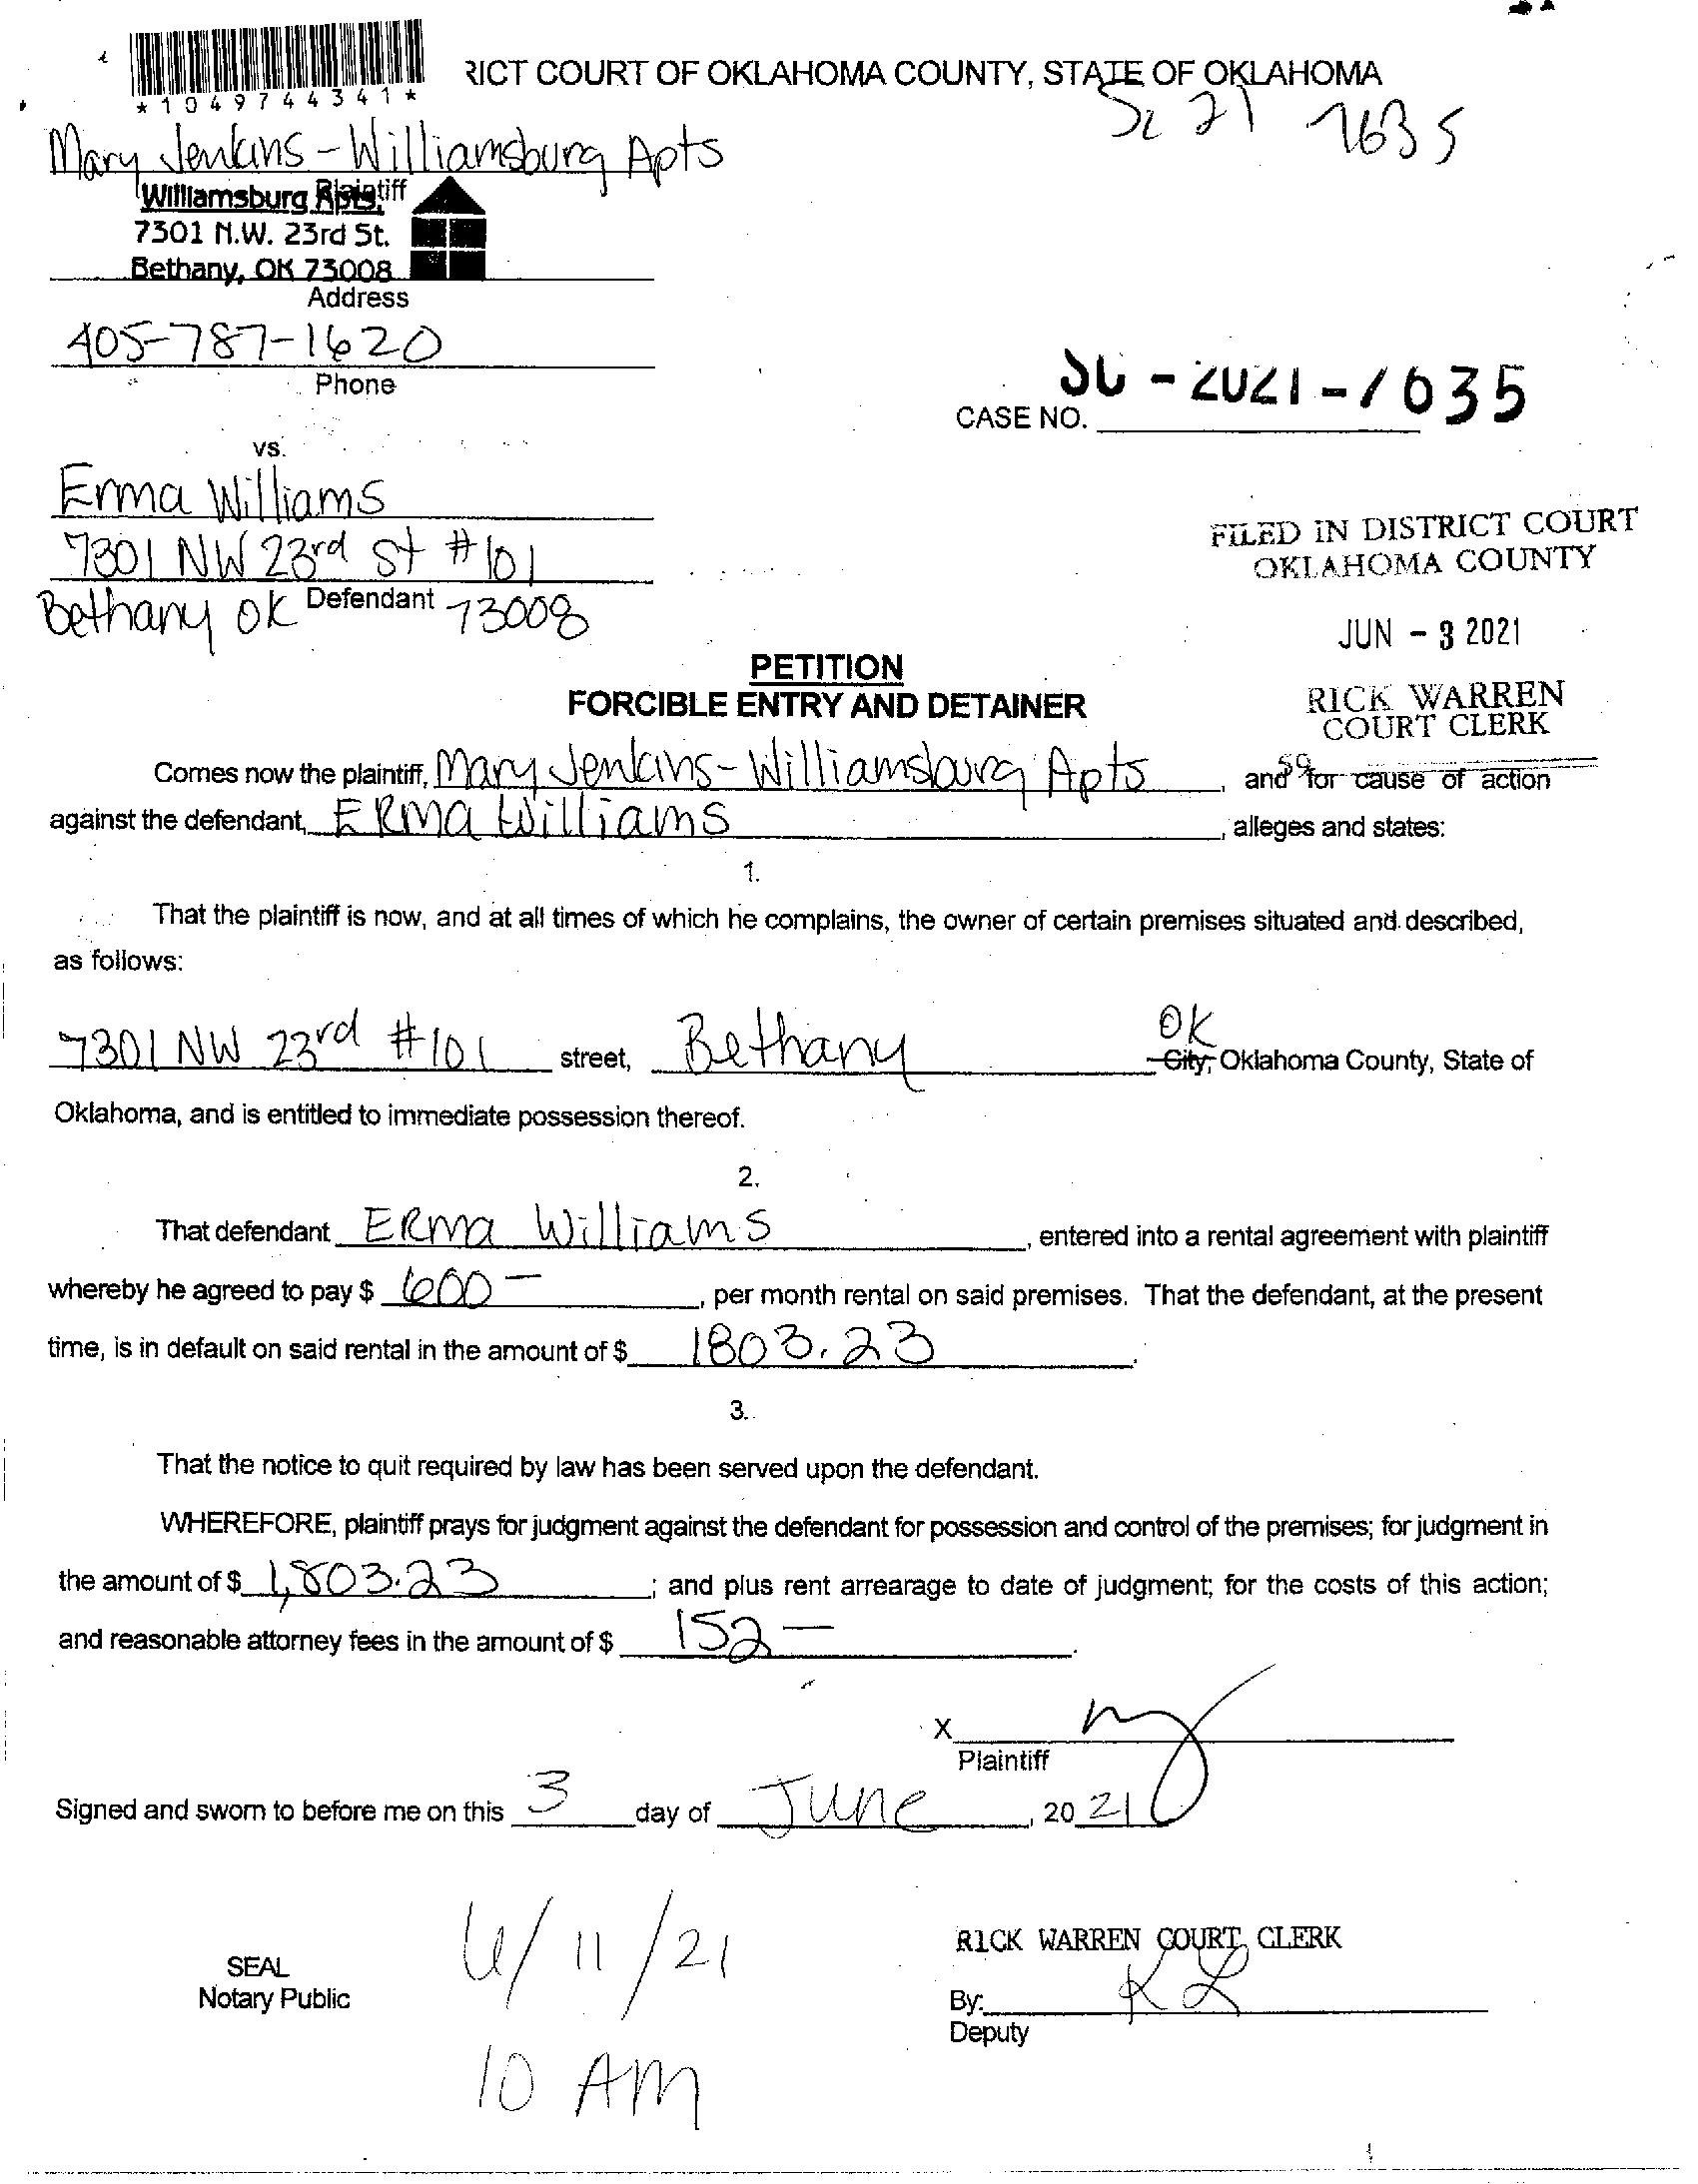 *1049744341*
RICT COURT OF OKLAHOMA COUNTY, STATE OF OKLAHOMA
SC 21 7635
Mary Jenkins - Williamsburg Apts
Plaintiff
Williamsburg Apts.
7301 N.W. 23rd St.
Bethany, OK 73008
Address
405-787-1620
Phone
CASE NO. SC-2021-7635
vs.
Erma Williams
7301 NW 23rd St #101
Defendant
Bethany OK 73008
FILED IN DISTRICT COURT
OKLAHOMA COUNTY
JUN - 3 2021
RICK WARREN
COURT CLERK
59
PETITION
FORCIBLE ENTRY AND DETAINER
Comes now the plaintiff, Mary Jenkins - Williamsburg Apts, and for cause of action
against the defendant, ERma Williams, alleges and states:
1.
That the plaintiff is now, and at all times of which he complains, the owner of certain premises situated and described,
as follows:
7301 NW 23rd #101 street, Bethany OK City, Oklahoma County, State of
Oklahoma, and is entitled to immediate possession thereof.
2.
That defendant ERma Williams, entered into a rental agreement with plaintiff
whereby he agreed to pay $ 600-, per month rental on said premises. That the defendant, at the present
time, is in default on said rental in the amount of $ 1803.23.
3.
That the notice to quit required by law has been served upon the defendant.
WHEREFORE, plaintiff prays for judgment against the defendant for possession and control of the premises; for judgment in
the amount of $ 1,803.23; and plus rent arrearage to date of judgment; for the costs of this action;
and reasonable attorney fees in the amount of $ 152-.
X
Plaintiff
Signed and sworn to before me on this 3 day of June, 20 21
SEAL
Notary Public
6/11/21
10 AM
RICK WARREN COURT CLERK
By: KL
Deputy